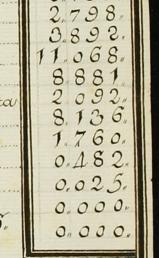 2.798„
3.892„
11.068„
8.881„
2.092„
8.136„
1.760„
0.482„
0.025„
0.000„
0.000„